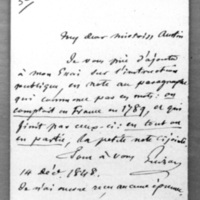 My dear mistriss Austin
Je vous prie d'ajouter
à mon Essai sur l'instruction
publique, en note au paragraphe
qui commence par ces mots: on
comptait en France en 1789, et qui
finit par ceux-ci: en tout ou
en partie, la petite note ci jointe
Tout à vous
14 Déc. 1848.
Je n'ai encore reçu aucune épreuve.